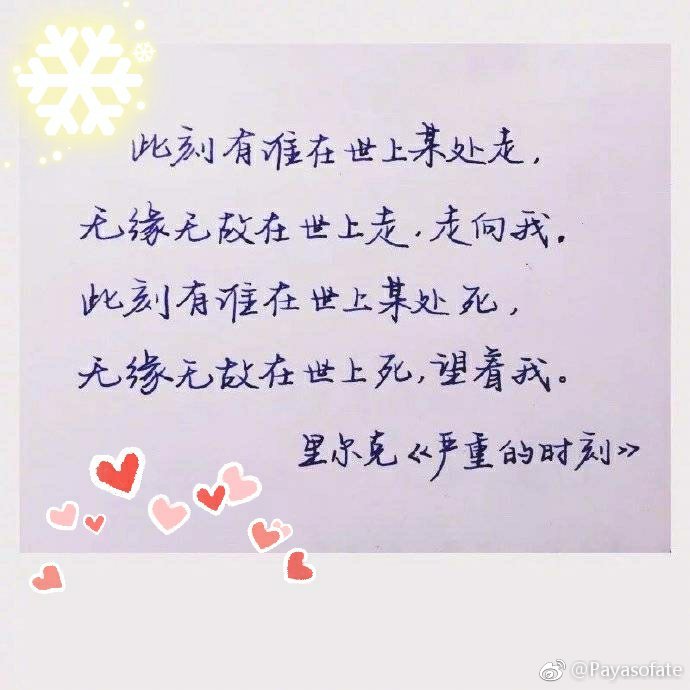 此刻有谁在世上某处走,
无缘无故在世上走,走向我。
此刻有谁在世上某处死,
无缘无故在世上死,望着我。
里尔克《严重的时刻》
@Payasofate